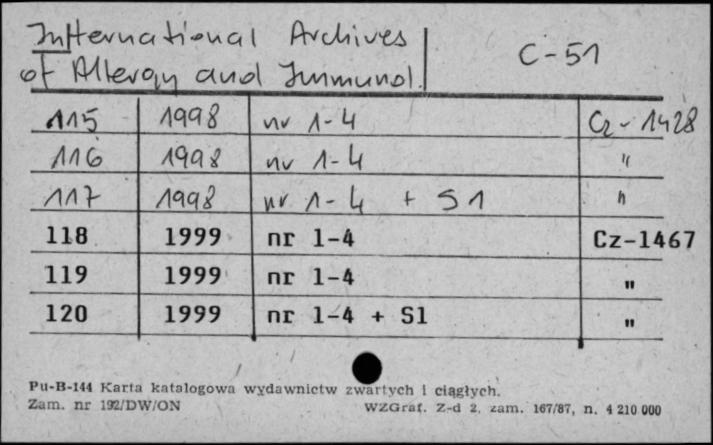 International Archives
of Allergy and Immunol.
C-51
115 1998 nr 1-4 Cz-1428
116 1998 nr 1-4 "
117 1998 nr 1-4 + S1 "
118 1999 nr 1-4 Cz-1467
119 1999 nr 1-4 "
120 1999 nr 1-4 + S1 "
Pu-B-144 Karta katalogowa wydawnictw zwartych i ciągłych.
Zam. nr 192/DW/ON WZGraf. Z-d 2, zam. 167/87, n. 4 210 000